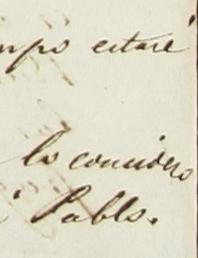 mpo estaré
lo considero
Pablo.